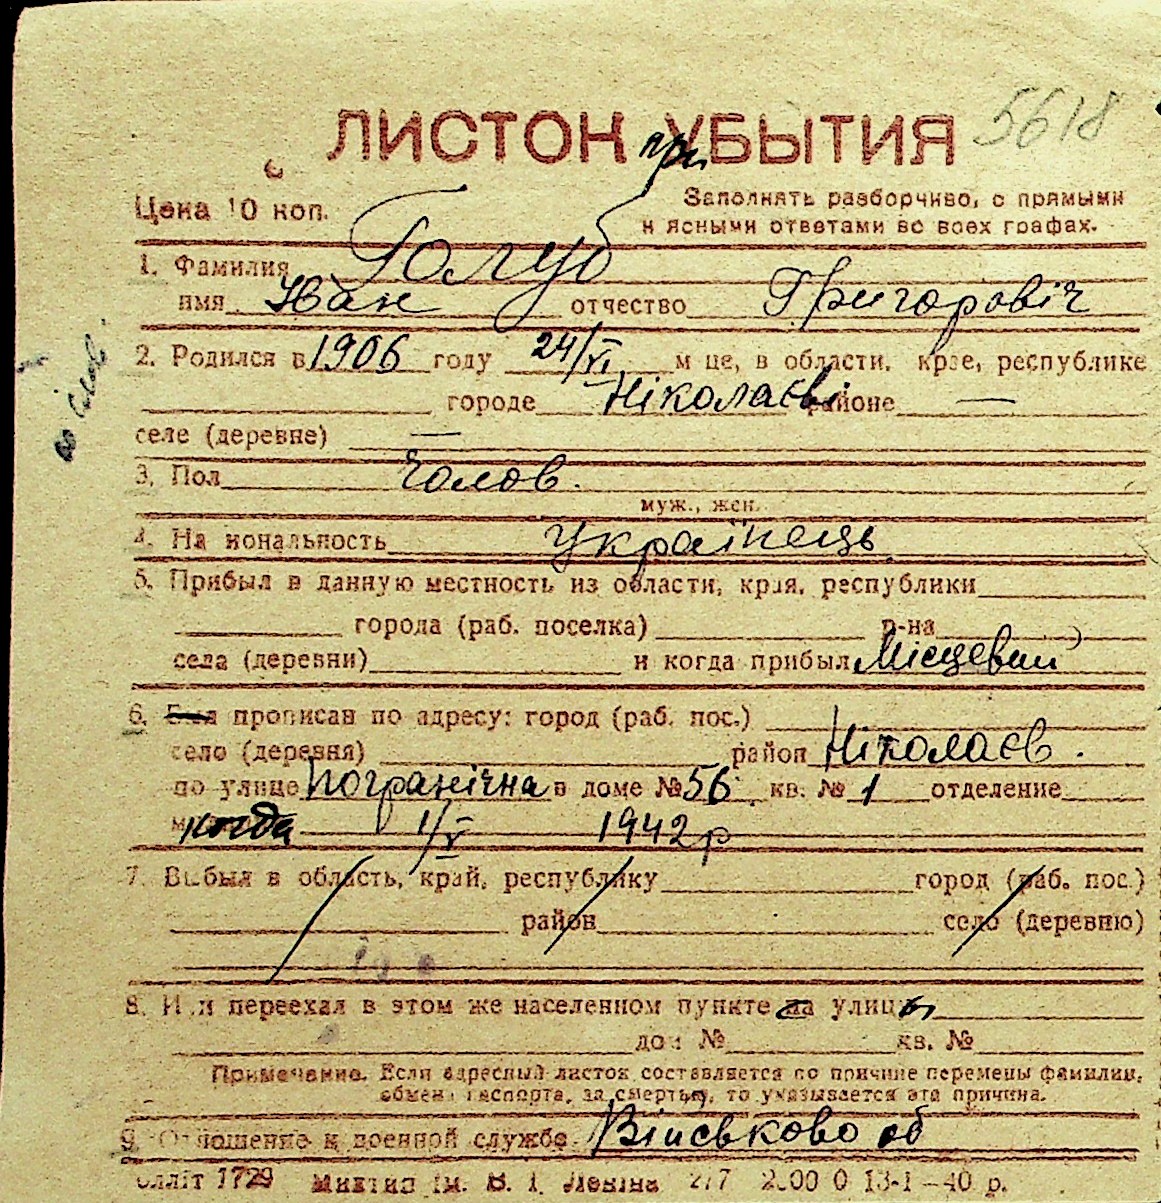 5618
ЛИСТОК при УБЫТИЯ
Цена 10 коп.
Заполнять разборчиво, с прямыми
и ясными ответами во всех графах.
1. Фамилия Голуб
имя Іван отчество Григоровіч
2. Родился в 1906 году 24/VI м це, в области, крае, республике
городе Ніколаєві районе —
селе (деревне) —
3. Пол чолов.
муж., жен.
4. На иональность українець
5. Прибыл в данную местность из области, края, республики
города (раб. поселка) р-на
села (деревни) и когда прибыл Місцевий
6. Был прописан по адресу: город (раб. пос.)
село (деревня) район Ніколаєв.
по улице Погранічна в доме № 56 кв. № 1 отделение
когда 1/V 1942 р
7. Выбыл в область, край, республику город (раб. пос.)
район село (деревню)
8. Или переехал в этом же населенном пункте на улицы
дом № кв. №
Примечание. Если адресный листок составляется по причине перемены фамилии,
обмена паспорта, за смертью, то указывается эта причина.
9. Отношение к военной службе Військово об
1729 ім. В. І. Леніна 277 13-1—40 р.